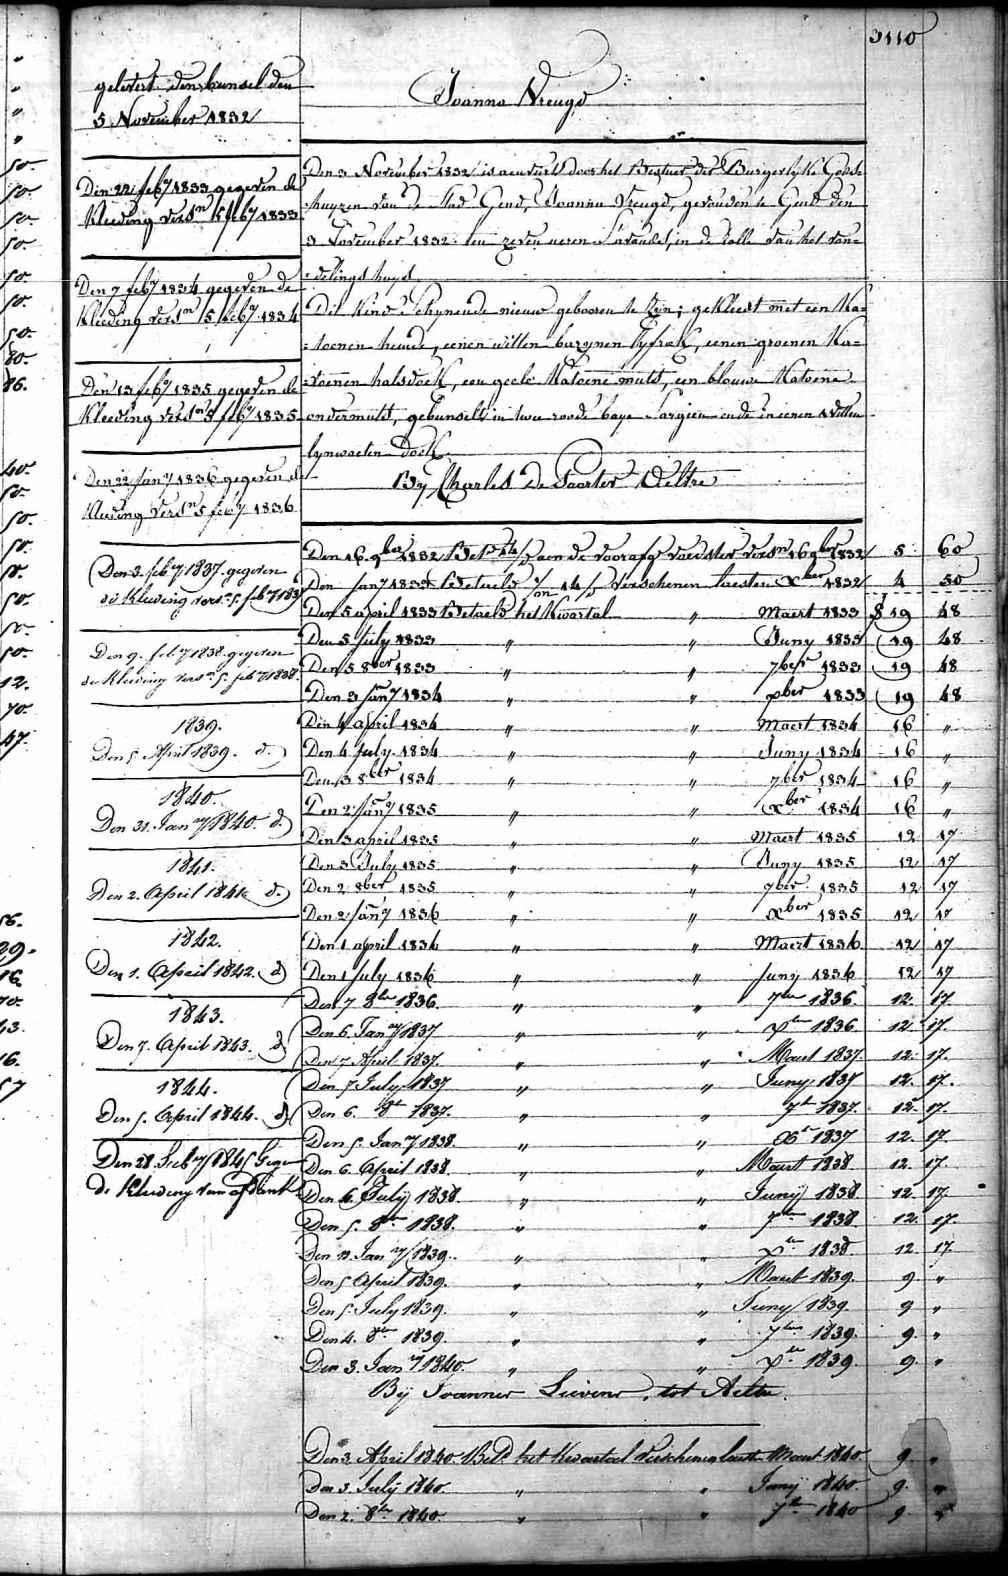 3110
Joanna Vreugd
gelevert den bunsel den
5 November 1832
Den 22 feb.y 1833 gegeven de
kleeding versn 5 feby 1833
Den 7 feby 1834 gegeven de
kleeding versn 5 feby 1834
Den 13 feby 1835 gegeven de
kleeding versn 5 feby 1835
Den 22 Jany 1836 gegeven de
kleeding versn 5 feby 1836
Den 3. feby 1837. gegeven
de kleeding versn 5. feby 1837
Den 9. feby 1838. gegeven
de kleeding versn 5. feby 1838.
1839.
Den 5. April 1839. d.
1840.
Den 31. Jany 1840. d.
1841.
Den 2. April 1841. d.
1842.
Den 1. April 1842. d.
1843.
Den 7. April 1843. d.
1844.
Den 5. April 1844. d.
Den 28 Feby 1845 Gege
de kleeding van afdank
Den 3 November 1832 is aenveird door het Bestuer der Burgerlyke Gods=
=huyzen van de Stad Gend, Joanna Vreugd, gevonden te Gend den
3 November 1832 ten zeven ueren S'avonds, in de rolle van het von=
=delings huys.
Dit kind schynende nieuw gebooren te zyn; gekleert met een Ka=
=toenen hemde, eenen witten bazynen lyfrok, eenen groenen Ka=
=toenen halsdoek, een geele Katoene muts, een blauwe Katoene
ondermuts, gebunselt in twee roode baye Sargien ende in eenen witten
lynwaeten Doek
By Charles De Paorter Aeltre
Den 16. 9ber 1832 Bet aen de voorafg voedster versn 16 9ber 1832 5 60
Den Jany 1833 Betaeld verschenen laesten Xber 1832 4 50
Den 5 april 1833 Betaeld het Kwartal " Maert 1833 19 48
Den 5 July 1833 " " Juny 1833 19 48
Den 5 8ber 1833 " " 7ber 1833 19 48
Den 3 Jany 1834 " " xber 1833 19 48
Den 4 april 1834 " " Maert 1834 16 "
Den 4 July 1834 " " Juny 1834 16 "
Den 3 8ber 1834 " " 7ber 1834 16 "
Den 2 Jany 1835 " " Xber 1834 16 "
Den 3 april 1835 " " Maert 1835 12 17
Den 3 July 1835 " " Juny 1835 12 17
Den 2 8ber 1835 " " 7ber 1835 12 17
Den 2 Jany 1836 " " Xber 1835 12 17
Den 1 april 1836 " " Maert 1836 12 17
Den 1 July 1836 " " Juny 1836 12 17
Den 7 8ber 1836. " " 7ber 1836. 12. 17.
Den 6. Jany 1837 " " Xber 1836. 12. 17.
Den 7 April 1837. " " Maert 1837. 12. 17.
Den 7. July 1837 " " Juny 1837 12. 17.
Den 6. 8er 1837. " " 7er 1837. 12. 17.
Den 5. Jany 1838. " " Xer 1837 12. 17.
Den 6. April 1838. " " Maert 1838 12. 17.
Den 6. July 1838. " " Juny 1838 12. 17.
Den 5. 8ber 1838. " " 7ber 1838 12. 17.
Den 11. Jany 1839. " " Xber 1838 12. 17.
Den 5 April 1839. " " Maert 1839. 9. "
Den 5. July 1839. " " Juny 1839. 9 "
Den 4. 8ber 1839. " " 7ber 1839. 9. "
Den 3. Jany 1840. " " Xber 1839. 9. "
By Joannes Lievens, tot Aeltre.
Den 3. April 1840 Betd het Kwartael Verschenen laesten Maert 1840. 9. "
Den 3. July 1840. " " Juny 1840. 9. "
Den 2. 8ber 1840. " " 7ber 1840 9. "